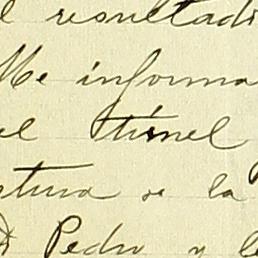 l resultad
Me informa
el túnel
tura de la
Pedro y l